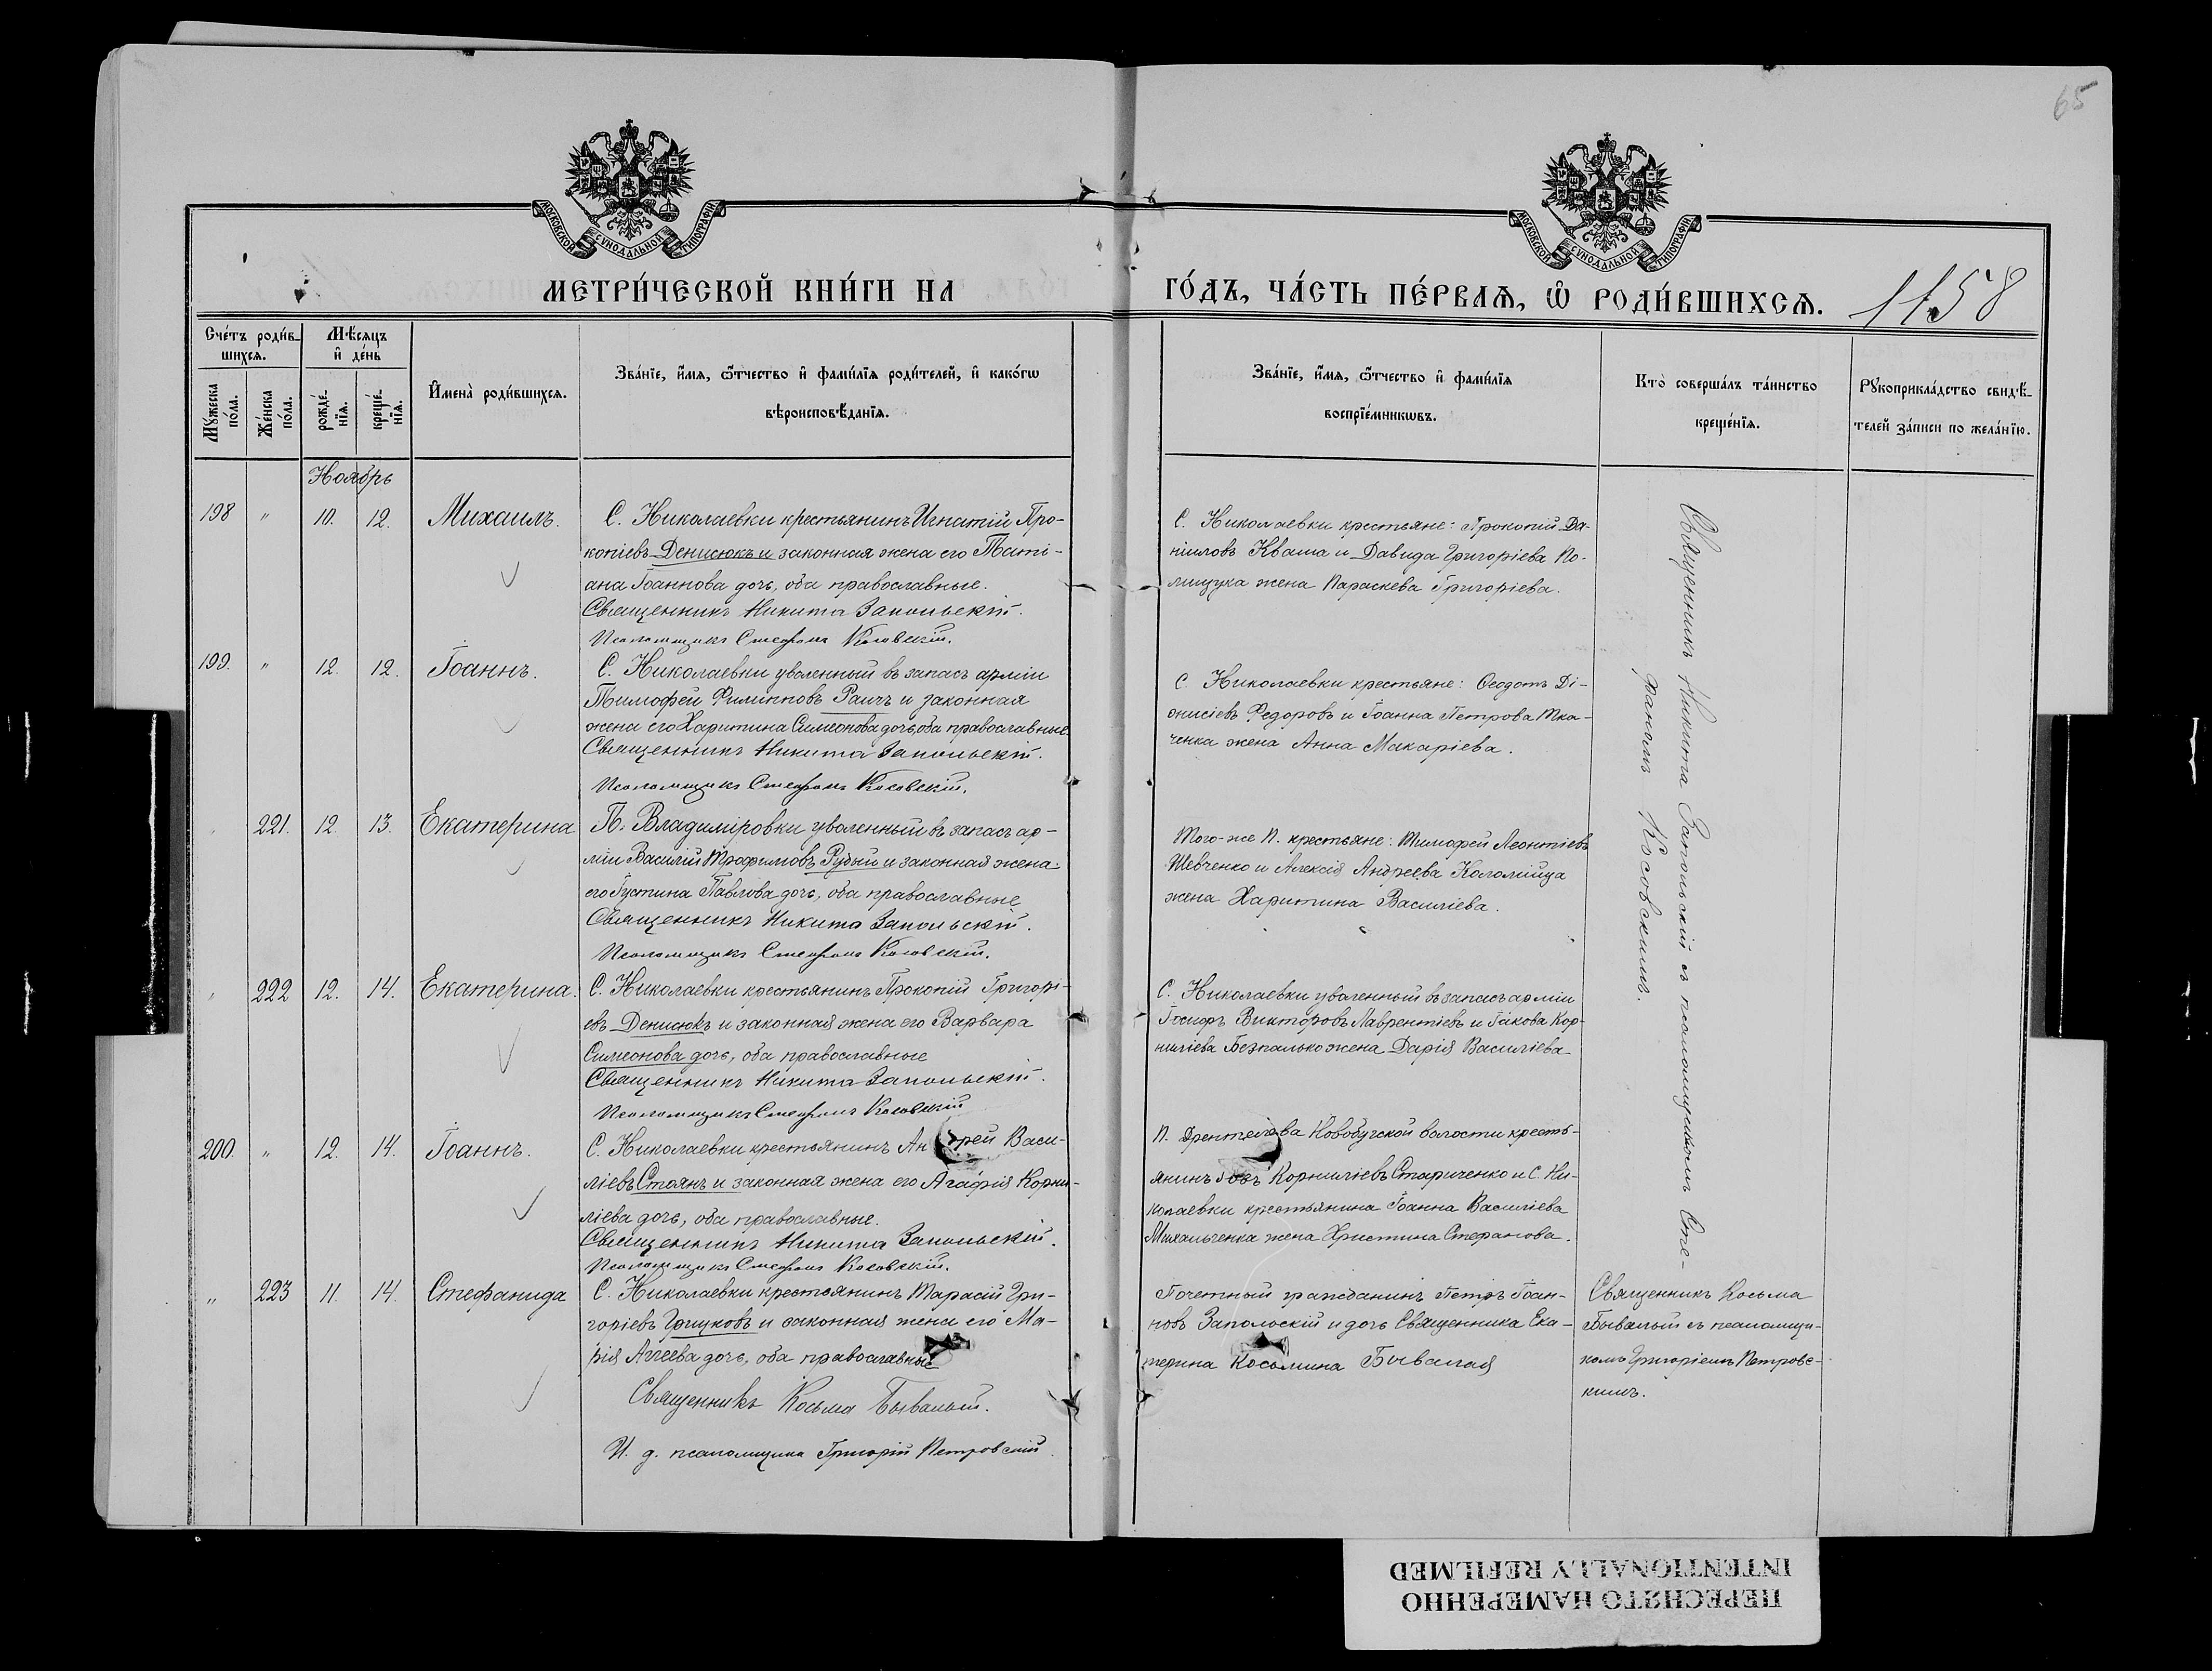 65
МОСКОВСКОЙ СѴНОДАЛЬНОЙ ТИПОГРАФІИ
МОСКОВСКОЙ СѴНОДАЛЬНОЙ ТИПОГРАФІИ
МЕТРИ́ЧЕСКОЙ КНИ́ГИ НА
ГО́ДЪ, ЧА́СТЬ ПЕ́РВАѦ, Ѽ РОДИ́ВШИХСѦ.
1158
Сче́тъ роди́в-
шихсѧ.
Мѣ́сѧцъ
и҆ де́нь
Мꙋ́жеска
по́ла.
Же́нска
по́ла.
рожде́-
нїѧ.
креще́-
нїѧ.
И҆мена̀ роди́вшихсѧ.
Зва́нїе, и҆́мѧ, ѻ҆́тчество и҆ фами́лїѧ роди́телей, и҆ како́гѡ
вѣроисповѣ́данїѧ.
Зва́нїе, и҆́мѧ, ѻ҆́тчество и҆ фами́лїѧ
воспрїе́мникѡвъ.
Кто̀ соверша́лъ та́инство
креще́нїѧ.
Рꙋкоприкла́дство свидѣ́-
телей за́писи по жела́нїю.
Ноябрь
198 " 10. 12. Михаилъ.
С. Николаевки крестьянинъ Игнатій Про-
копіевъ Денисюкъ и законная жена его Таті-
ана Іоаннова дочь, оба православные.
Священникъ Никита Запольскій.
Псаломщикъ Стефанъ Косовскій.
С. Николаевки крестьяне: Прокопій Да-
ніиловъ Кваша и Давида Григоріева По-
лищука жена Параскева Григоріева.
199. " 12. 12. Іоаннъ.
С. Николаевки уволенный въ запасъ арміи
Тимофей Филипповъ Раичъ и законная
жена его Харитина Симеонова дочь, оба православные.
Священникъ Никита Запольскій.
Псаломщикъ Стефанъ Косовскій.
С. Николаевки крестьяне: Ѳеодотъ Ді-
онисіевъ Федоровъ и Іоанна Петрова Тка-
ченка жена Анна Макаріева.
" 221. 12. 13. Екатерина
П. Владиміровки уволенный въ запасъ ар-
міи Василій Трофимовъ Рудый и законная жена
его Іустина Павлова дочь, оба православные
Священникъ Никита Запольскій.
Псаломщикъ Стефанъ Косовскій.
Того-же П. крестьяне: Тимофей Леонтіевъ
Шевченко и Алексія Андреева Коломійца
жена Харитина Василіева.
" 222 12. 14. Екатерина.
С. Николаевки крестьянинъ Прокопій Григорі-
евъ Денисюкъ и законная жена его Варвара
Симеонова дочь, оба православные
Священникъ Никита Запольскій.
Псаломщикъ Стефанъ Косовскій
С. Николаевки уволенный въ запасъ арміи
Іосифъ Викторовъ Лаврентіевъ и Іакова Кор-
ниліева Безпалько жена Дарія Василіева
200. " 12. 14. Іоаннъ.
С. Николаевки крестьянинъ Андрей Васи-
ліевъ Стоянъ и законная жена его Агафія Корни-
ліева дочь, оба православные.
Священникъ Никита Запольскій.
Псаломщикъ Стефанъ Косовскій.
П. Новобугской волости кресть-
янинъ Корниліевъ Стариченко и С. Ни-
колаевки крестьянина Іоанна Василіева
Михальченка жена Христина Стефанова.
Священникъ Никита Запольскій съ псаломщикомъ Сте-
фаномъ Косовскимъ.
" 223 11. 14. Стефанида
С. Николаевки крестьянинъ Тарасій Гри-
горіевъ Грицковъ и законная жена его Ма-
рія Аггеева дочь, оба православные
Священникъ Косьма Бывалый.
И. д. псаломщика Григорій Петровскій
Почетный гражданинъ Петръ Іоан-
новъ Запольскій и дочь Священника Ека-
терина Косьмина Бывалая
Священникъ Косьма
Бывалый съ псаломщи-
комъ Григоріемъ Петровс-
кимъ.
ПЕРЕСНЯТО НАМЕРЕННО
INTENTIONALLY REFILMED